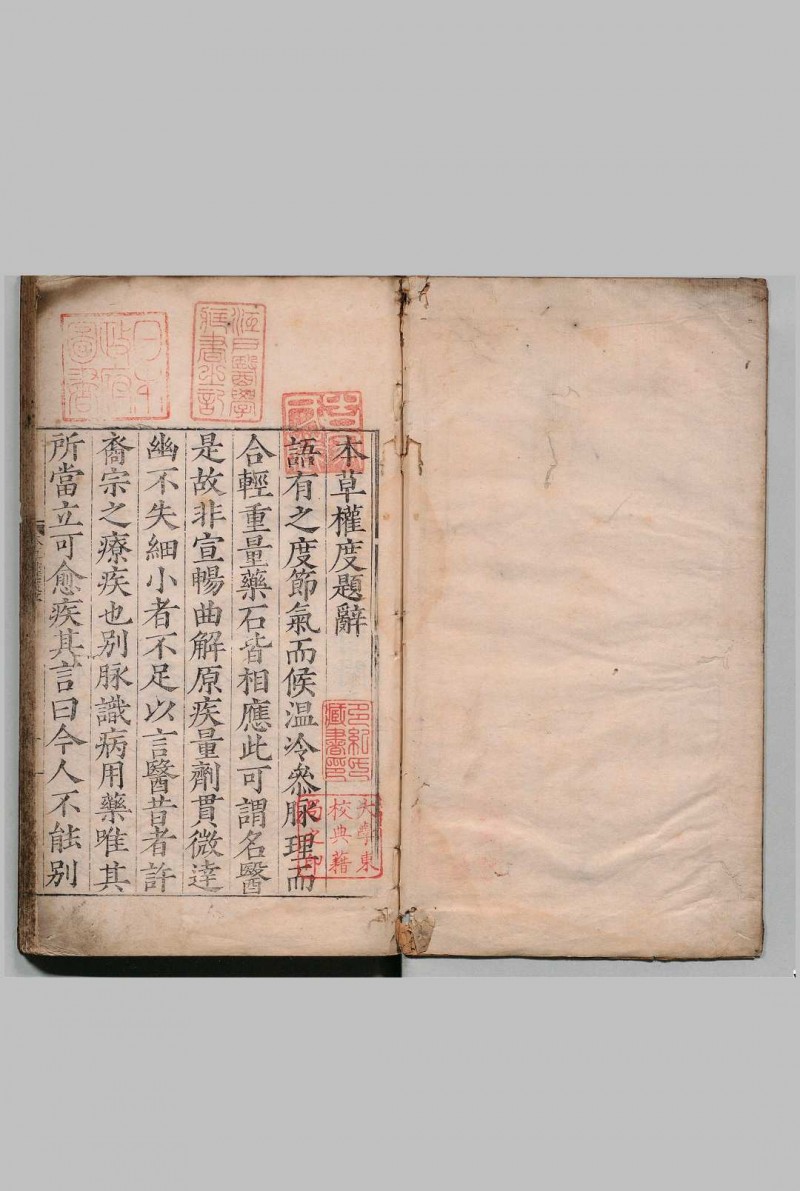 本草權度題辭
語有之度節氣而候温冷叅脉理而
合輕重量藥石皆相應此可謂名醫
是故非宣暢曲解原疾量劑貫微達
幽不失細小者不足以言醫昔者許
裔宗之療疾也別脉識病用藥唯其
所當立可愈疾其言曰今人不能別
江戸醫學
藏書之記
日本
政府
圖書
大學東
校典藉
局之印